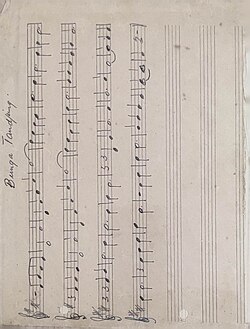 Bunga Tandjung.